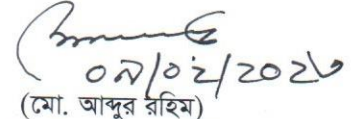 ০৯/০২/২০২৩
(মো. আব্দুর রহিম)